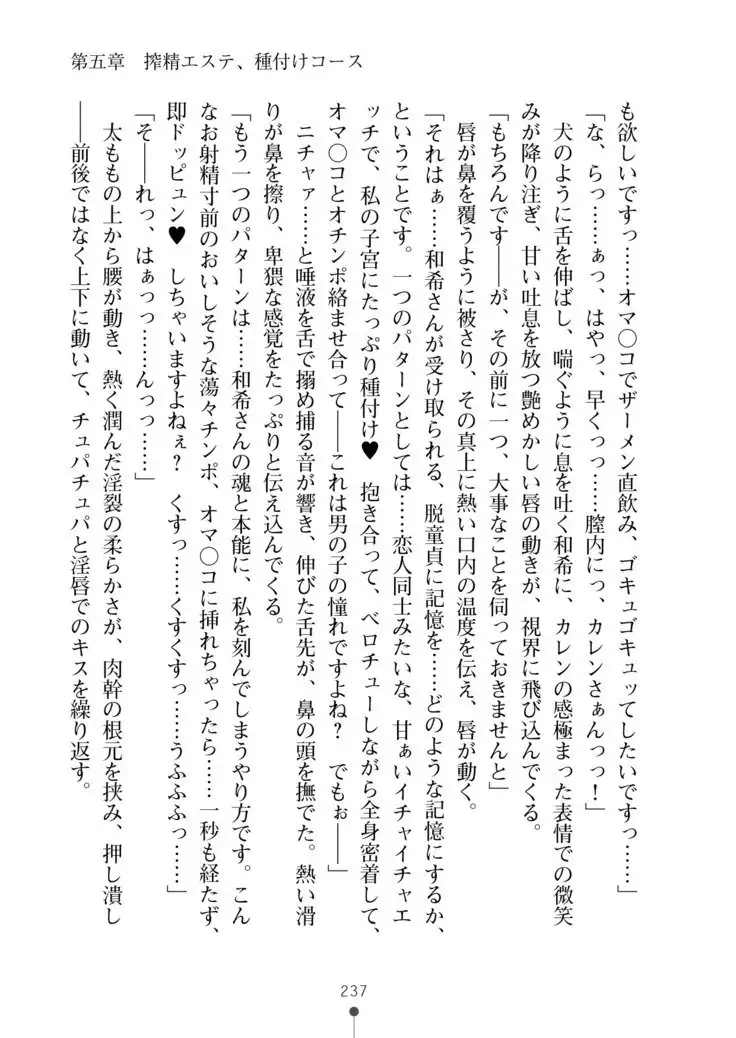 第五章　搾精エステ、種付けコース
も欲しいですっ……オマ〇コでザーメン直飲み、ゴキュゴキュッてしたいですっ……」
「な、らっ……ぁっ、はやっ、早くっっ……膣内にっ、カレンさぁんっっ！」
犬のように舌を伸ばし、喘ぐように息を吐く和希に、カレンの感極まった表情での微笑
みが降り注ぎ、甘い吐息を放つ艶めかしい唇の動きが、視界に飛び込んでくる。
「もちろんです――が、その前に一つ、大事なことを伺っておきませんと」
唇が鼻を覆うように被さり、その真上に熱い口内の温度を伝え、唇が動く。
「それはぁ……和希さんが受け取られる、脱童貞に記憶を……どのような記憶にするか、
ということです。一つのパターンとしては……恋人同士みたいな、甘ぁいイチャイチャエ
ッチで、私の子宮にたっぷり種付け♥　抱き合って、ベロチューしながら全身密着して、
オマ〇コとオチンポ絡ませ合って――これは男の子の憧れですよね？　でもぉ――」
ニチャァ……と唾液を舌で搦め捕る音が響き、伸びた舌先が、鼻の頭を撫でた。熱い滑
りが鼻を擦り、卑猥な感覚をたっぷりと伝え込んでくる。
「もう一つのパターンは……和希さんの魂と本能に、私を刻んでしまうやり方です。こん
なお射精寸前のおいしそうな蕩々チンポ、オマ〇コに挿れちゃったら……一秒も経たず、
即ドッピュン♥　しちゃいますよねぇ？　くすっ……くすくすっ……うふふふっ……」
「そ――れっ、はぁっっ……んっっ……」
太ももの上から腰が動き、熱く潤んだ淫裂の柔らかさが、肉幹の根元を挟み、押し潰し
――前後ではなく上下に動いて、チュパチュパと淫唇でのキスを繰り返す。
237